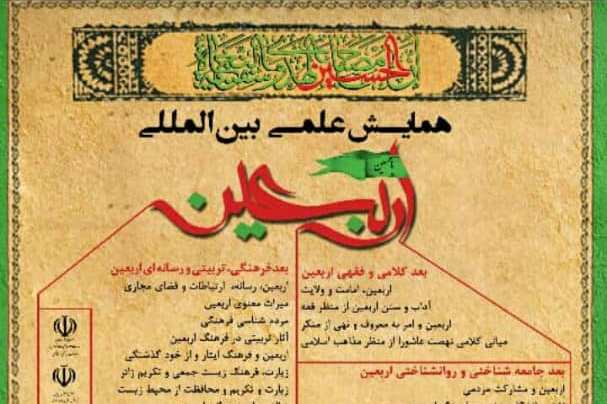 ان الحسین مصباح الهدی و سفینة النجاة
همایش علمی بین المللی
اربعین
بعد کلامی و فقهی اربعین
اربعین، امامت و ولایت
آداب و سنن اربعین از منظر فقه
اربعین و امر به معروف و نهی از منکر
مبانی کلامی نهضت عاشورا از منظر مذاهب اسلامی
بعد جامعه شناختی و روانشناختی اربعین
اربعین و مشارکت مردمی
بعدفرهنگی، تربیتی و رسانه ای اربعین
اربعین، رسانه، ارتباطات و فضای مجازی
میراث معنوی اربعین
مردم شناسی فرهنگی
آثار تربیتی در فرهنگ اربعین
اربعین و فرهنگ ایثار و از خود گذشتگی
زیارت، فرهنگ زیست جمعی و تکریم زائر
زیارت و تکریم و محافظت از محیط زیست